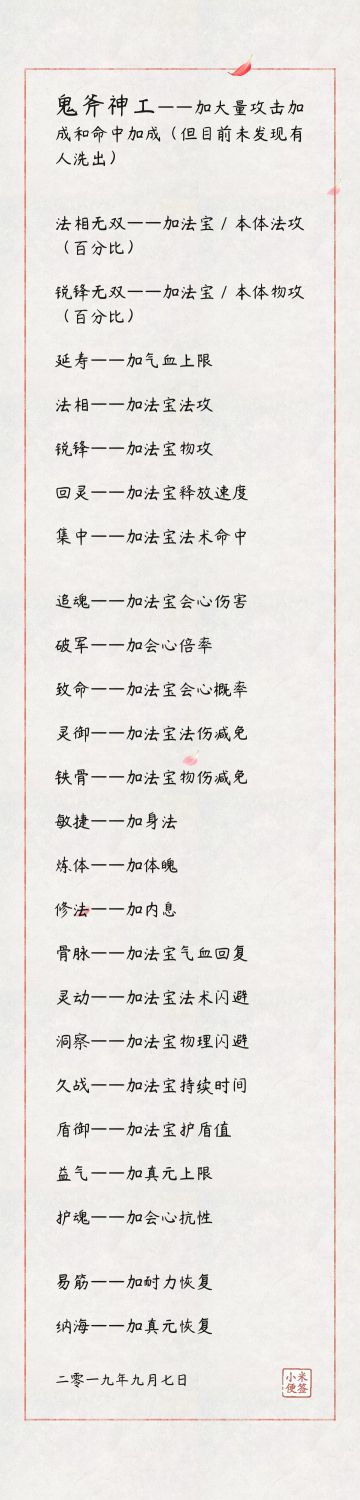 鬼斧神工——加大量攻击加
成和命中加成（但目前未发现有
人洗出）
法相无双——加法宝/本体法攻
（百分比）
锐锋无双——加法宝/本体物攻
（百分比）
延寿——加气血上限
法相——加法宝法攻
锐锋——加法宝物攻
回灵——加法宝释放速度
集中——加法宝法术命中
追魂——加法宝会心伤害
破军——加会心倍率
致命——加法宝会心概率
灵御——加法宝法伤减免
铁骨——加法宝物伤减免
敏捷——加身法
炼体——加体魄
修法——加内息
骨脉——加法宝气血回复
灵动——加法宝法术闪避
洞察——加法宝物理闪避
久战——加法宝持续时间
盾御——加法宝护盾值
益气——加真元上限
护魂——加会心抗性
易筋——加耐力恢复
纳海——加真元恢复
二零一九年九月七日
小米
便签